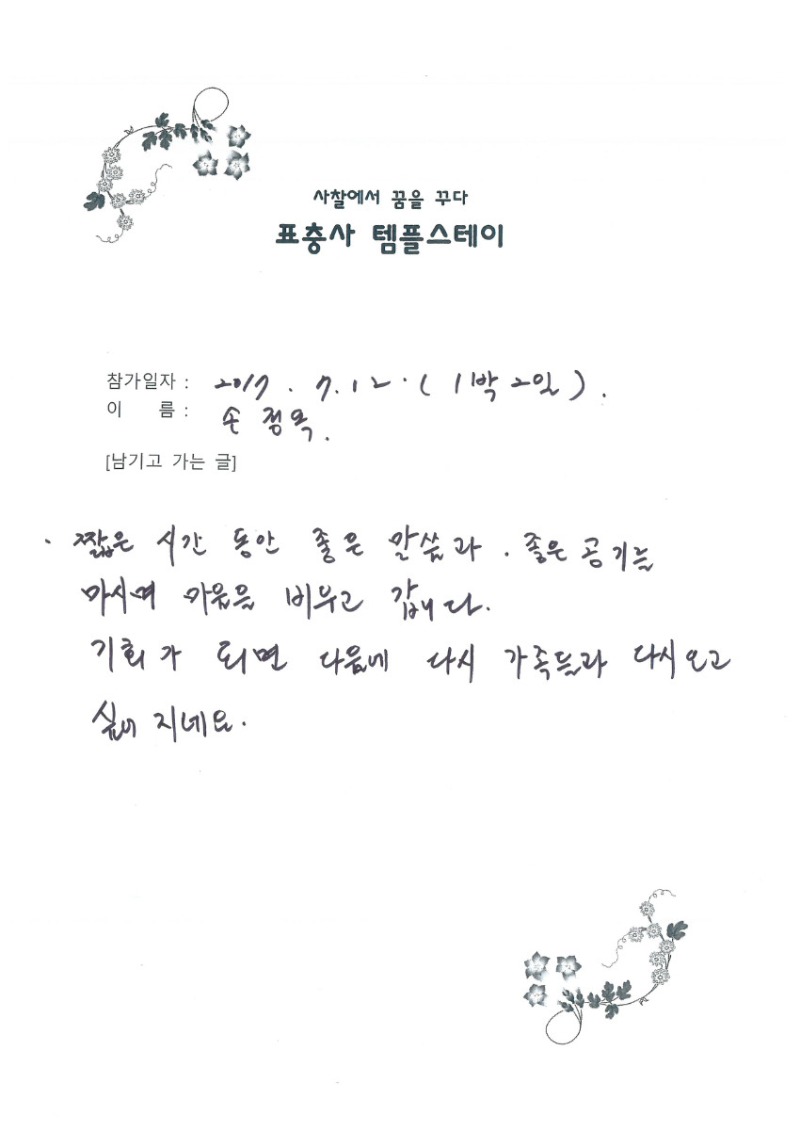 사찰에서 꿈을 꾸다
표충사 템플스테이
참가일자 : 2017. 7. 12. (1박 2일).
이 름 : 손정옥.
[남기고 가는 글]
· 짧은 시간 동안 좋은 말씀과. 좋은 공기를
마시며 마음을 비우고 갑니다.
기회가 되면 다음에 다시 가족들과 다시 오고
싶어 지네요.